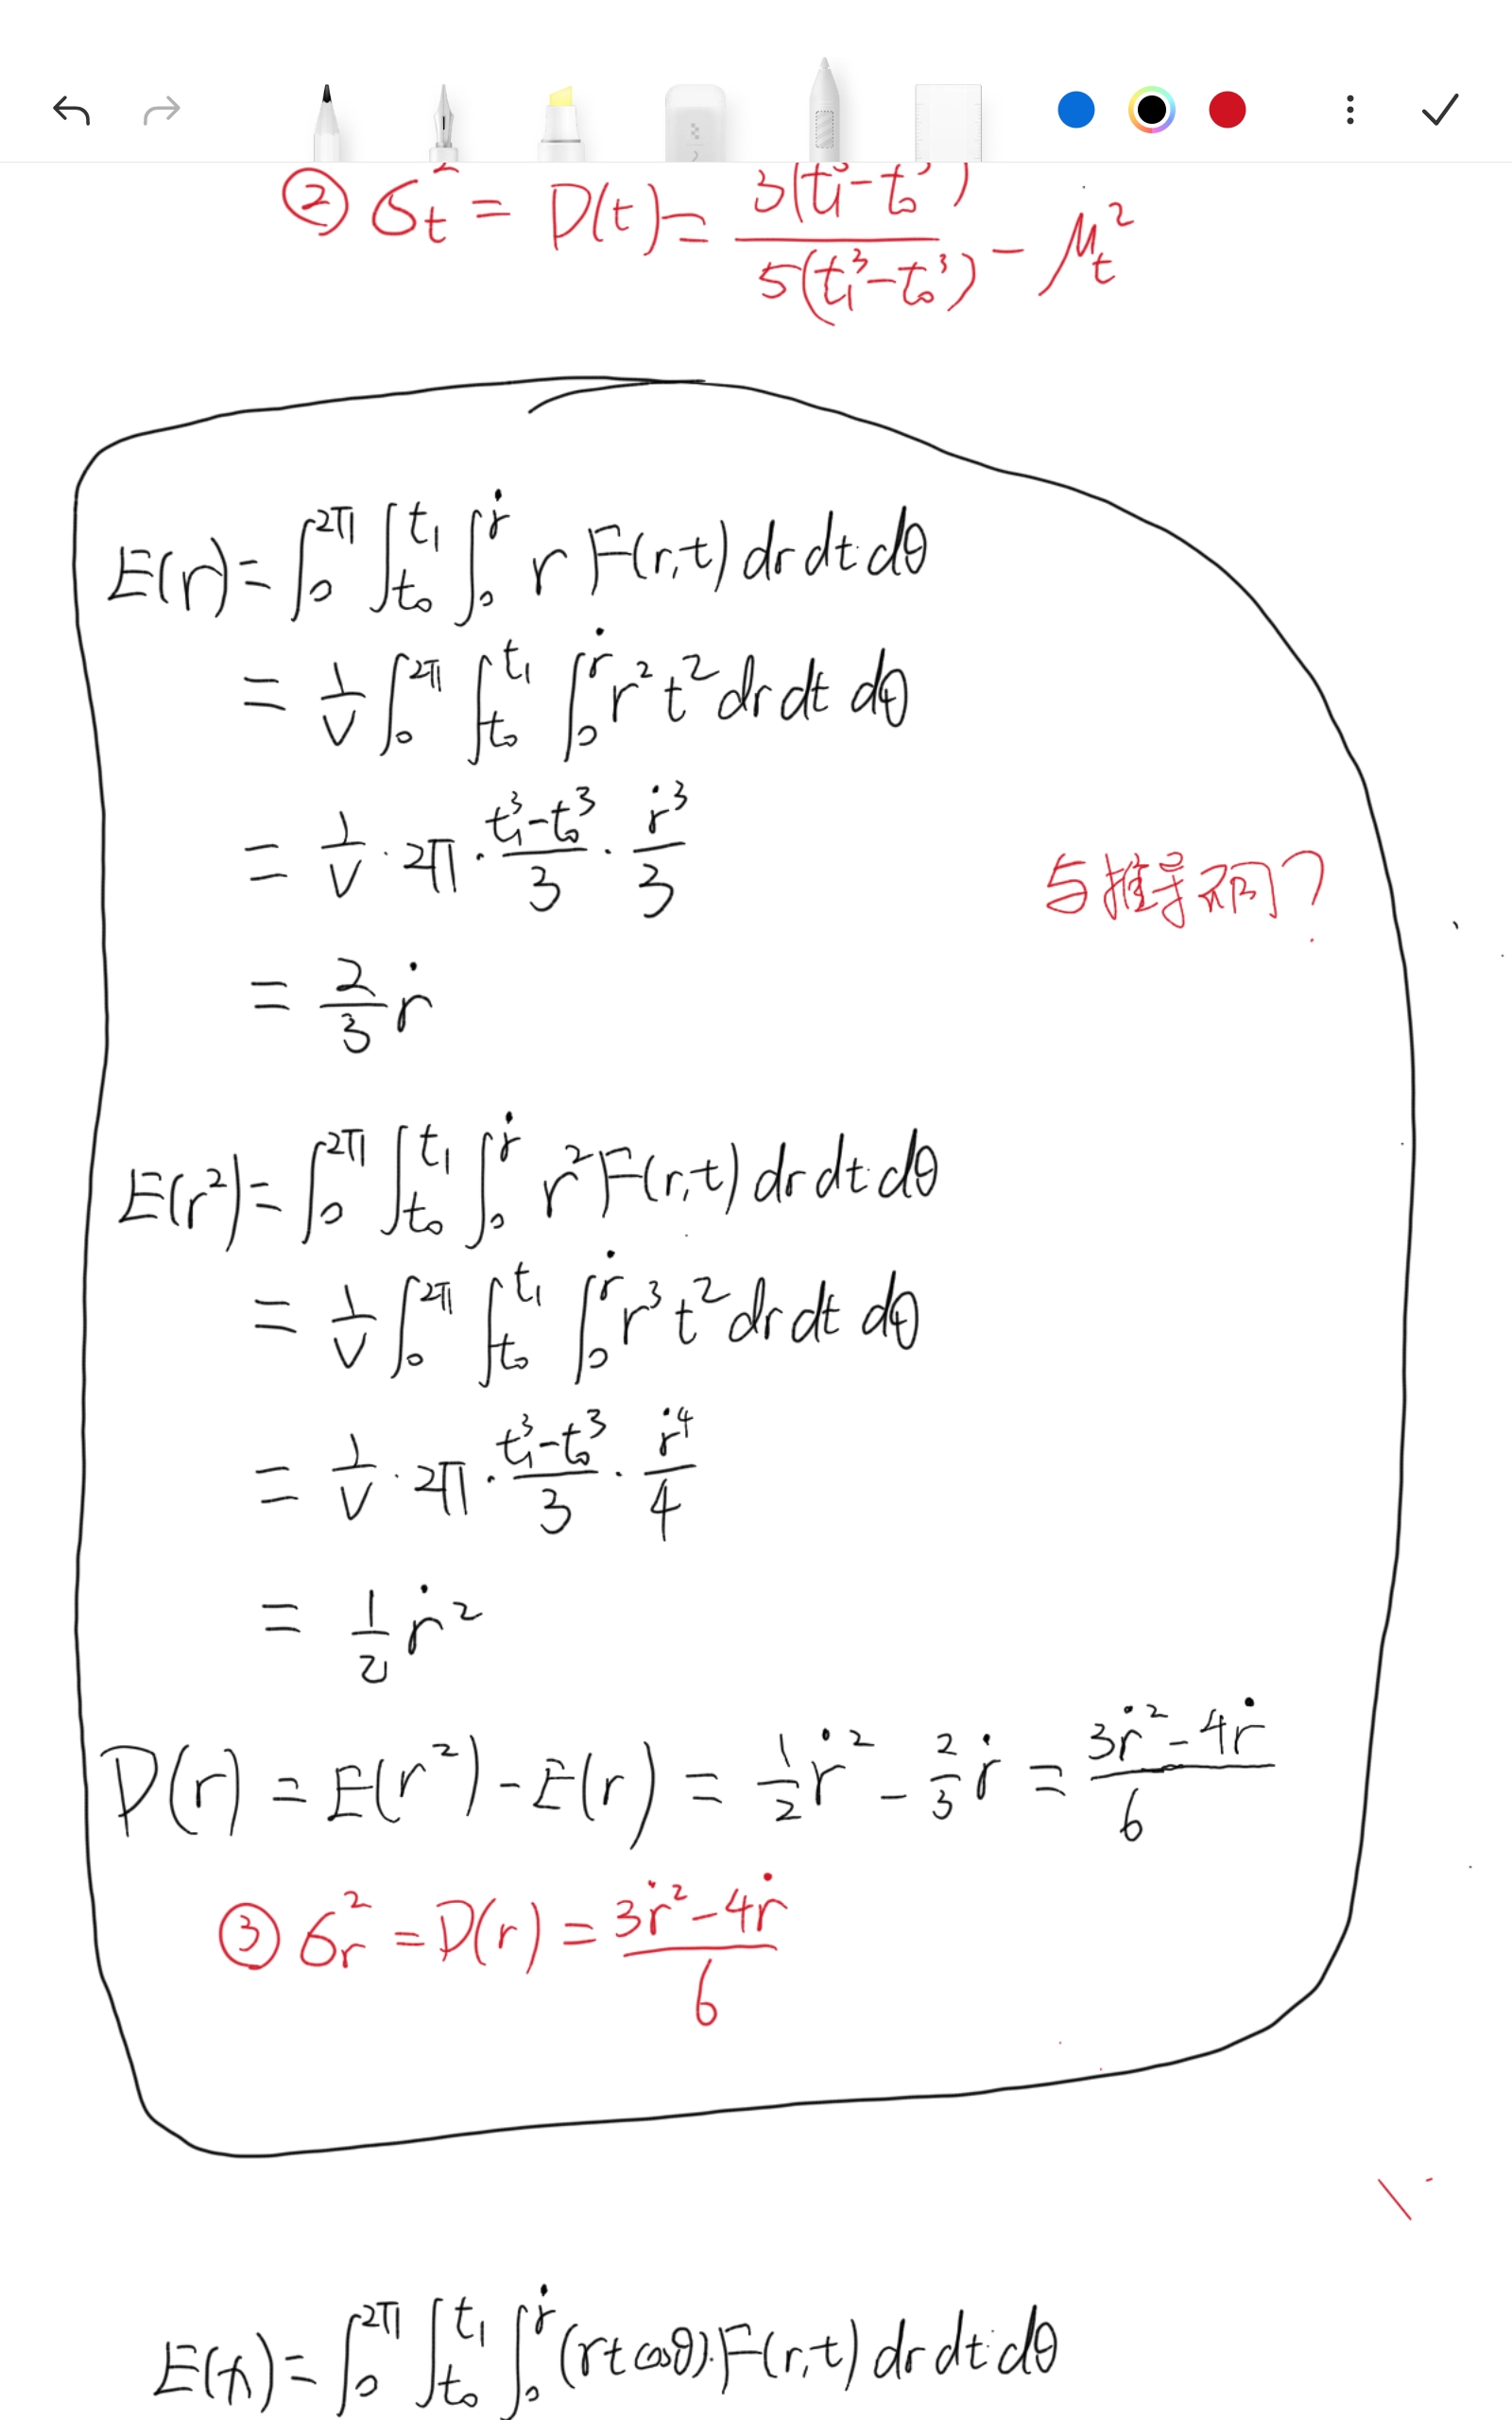 ② σₜ² = D(t) = 3(t₁⁵-t₀⁵) / 5(t₁³-t₀³) - μₜ²
E(r) = ∫₀^{2π} ∫_{t₀}^{t₁} ∫₀^{ṙ} r F(r,t) dr dt dθ
= 1/V ∫₀^{2π} ∫_{t₀}^{t₁} ∫₀^{ṙ} r² t² dr dt dθ
= 1/V · 2π · (t₁³-t₀³)/3 · ṙ³/3
与推导不同?
= 2/3 ṙ
E(r²) = ∫₀^{2π} ∫_{t₀}^{t₁} ∫₀^{ṙ} r² F(r,t) dr dt dθ
= 1/V ∫₀^{2π} ∫_{t₀}^{t₁} ∫₀^{ṙ} r³ t² dr dt dθ
= 1/V · 2π · (t₁³-t₀³)/3 · ṙ⁴/4
= 1/2 ṙ²
D(r) = E(r²) - E(r) = 1/2 ṙ² - 2/3 ṙ = (3ṙ²-4ṙ)/6
③ σᵣ² = D(r) = (3ṙ²-4ṙ)/6
∫₀^{2π} ∫_{t₀}^{t₁} ∫₀^{ṙ} (r t cosθ)·F(r,t) dr dt dθ